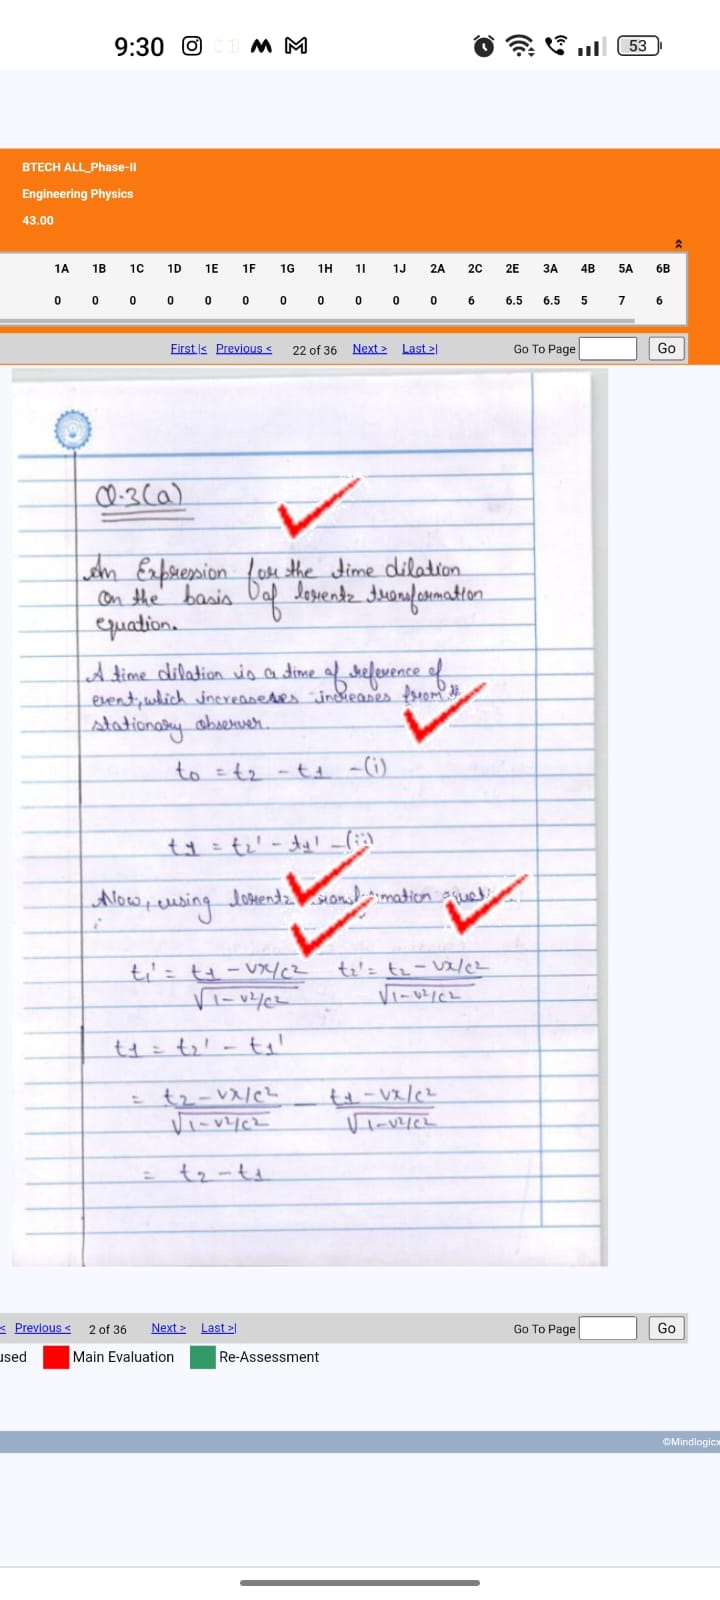 9:30
53
BTECH ALL_Phase-II
Engineering Physics
43.00
1A 1B 1C 1D 1E 1F 1G 1H 1I 1J 2A 2C 2E 3A 4B 5A 6B
0 0 0 0 0 0 0 0 0 0 0 6 6.5 6.5 5 7 6
First |< Previous < 22 of 36 Next > Last >| Go To Page Go
Q.3(a)
An Expression for the time dilation
on the basis of lorentz transformation
equation.
A time dilation is a time of reference of
event, which increases increases from
stationary observer.
t0 = t2 - t1 -(i)
t1 = t2' - t1' -(ii)
Now, using lorentz mation
t1' = t1 - vx/c2 t2' = t2 - vx/c2
√1-v2/c2 √1-v2/c2
t1 = t2' - t1'
= t2 - vx/c2 - t1 - vx/c2
√1-v2/c2 √1-v2/c2
= t2 - t1
< Previous < 2 of 36 Next > Last >| Go To Page Go
used Main Evaluation Re-Assessment
©Mindlogicx